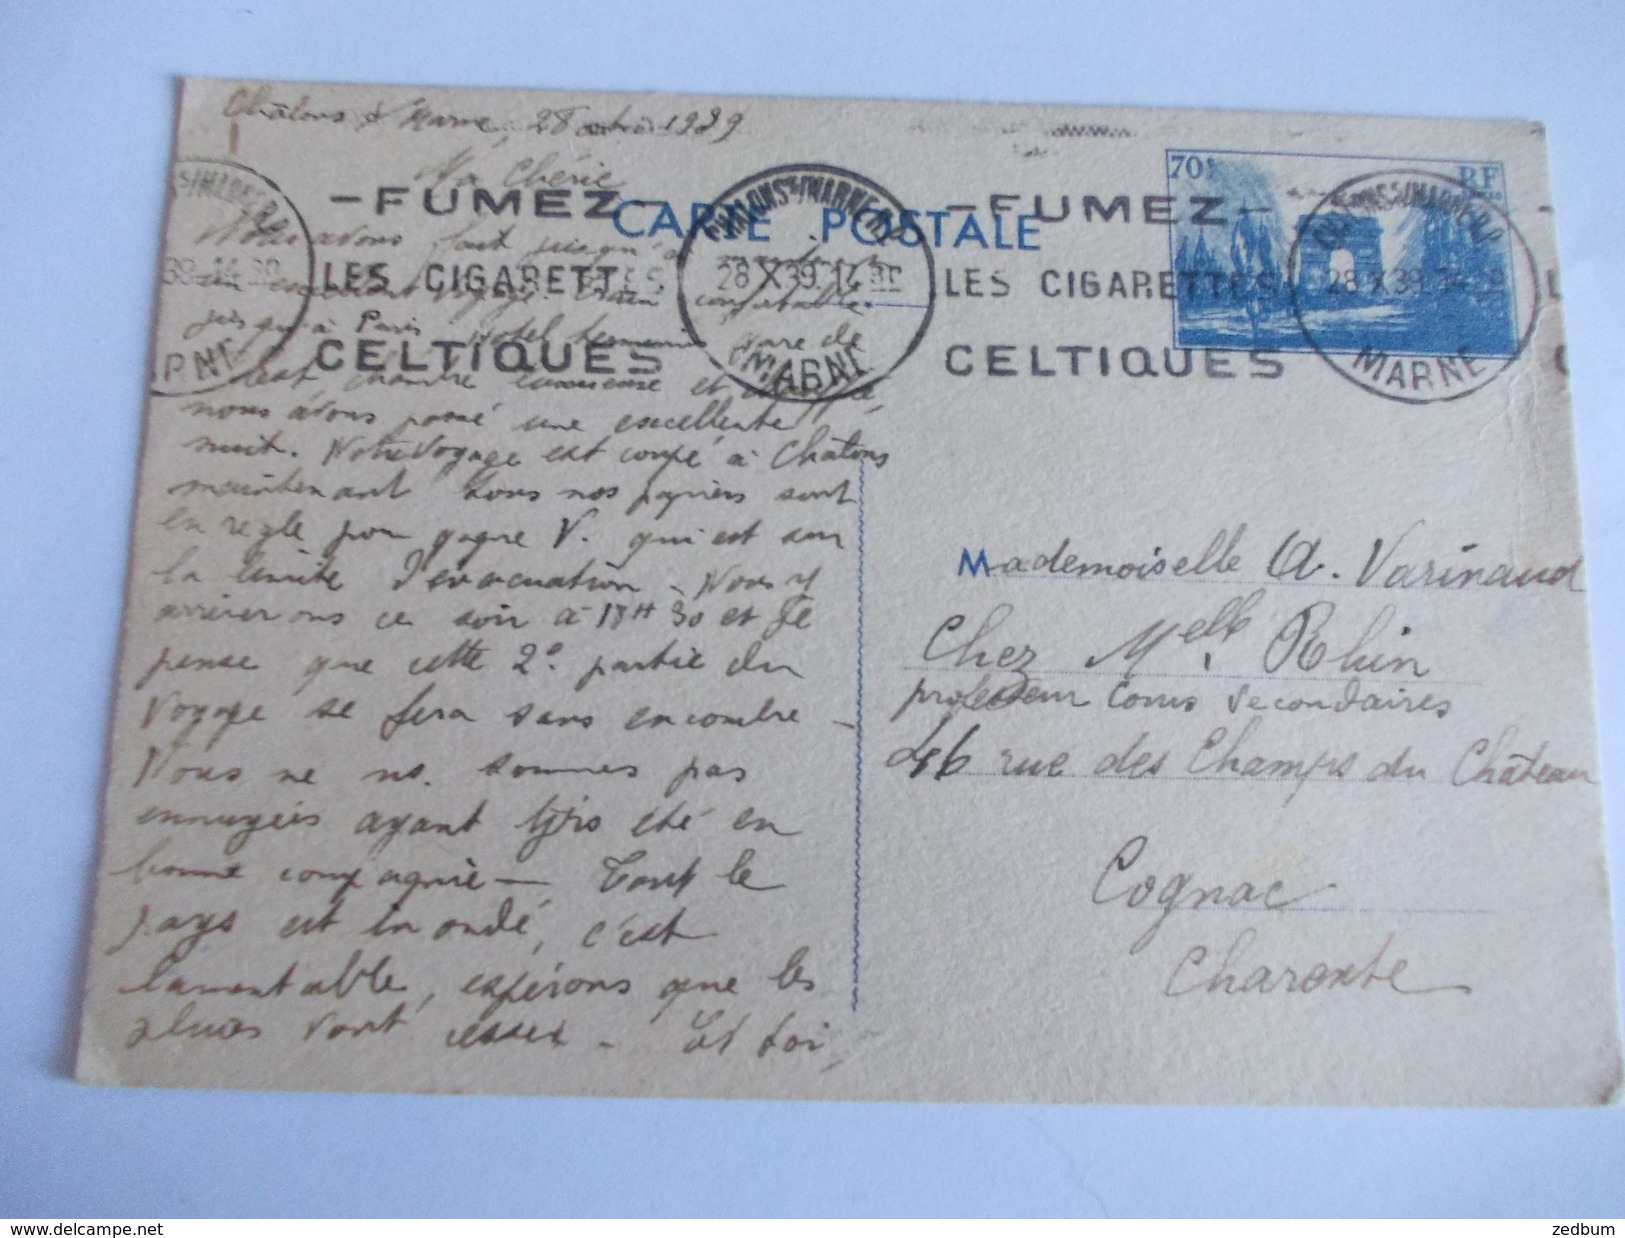 Châlons s/ Marne, 28 octobre 1939
Ma Chérie
Nous avons fait jusqu'à présent
un excellent voyage. Train confortable
jusqu'à Paris. Hotel terminus gare de
l'est chambre lumineuse et
nous avons passé une excellente
nuit. Notre voyage est coupé à Chalons
maintenant tous nos papiers sont
en regle pour gagne V. qui est sur
la limite d'evacuation. Nous y
arriverons ce soir à 18H30 et Je
pense que cette 2e. partie du
voyage se fera sans encombre -
Nous ne ns. sommes pas
ennuyées ayant tjrs été en
bonne compagnie - Tout le
pays est inondé, c'est
lamentable, espérons que les
pluies vont cesser - Et toi,
CARTE POSTALE
- FUMEZ -
LES CIGARETTES
CELTIQUES
CHALONS S/MARNE R.P.
28 X 39 14 30
MARNE
- FUMEZ -
LES CIGARETTES
CELTIQUES
CHALONS S/MARNE R.P.
28 X 39 14 30
MARNE
S/MARNE R.P.
39 14 30
RNE
70c
RF
Mademoiselle A. Varinaud
Chez Melle Rhin
professeur Cours Secondaires
46 rue des Champs du Château
Cognac
Charente
zedbum